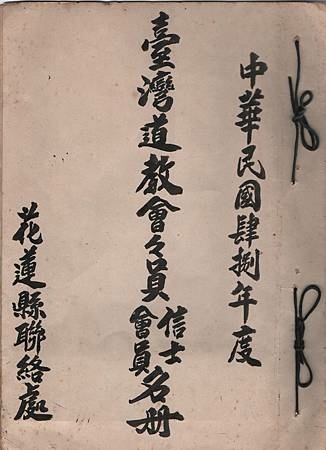 中華民國肆捌年度
臺灣道教會々員信士會員名冊
花蓮縣聯絡處